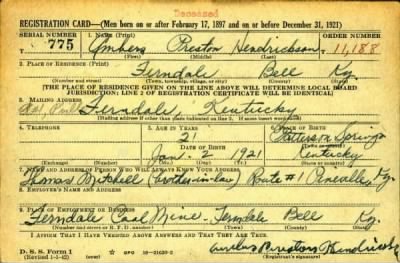 Deceased
REGISTRATION CARD—(Men born on or after February 17, 1897 and on or before December 31, 1921)
SERIAL NUMBER 1. NAME (Print) ORDER NUMBER
775 Ambers Preston Hendrickson 11,188
(First) (Middle) (Last)
2. PLACE OF RESIDENCE (Print)
Ferndale Bell Ky.
(Number and street) (Town, township, village, or city) (County) (State)
[THE PLACE OF RESIDENCE GIVEN ON THE LINE ABOVE WILL DETERMINE LOCAL BOARD
JURISDICTION; LINE 2 OF REGISTRATION CERTIFICATE WILL BE IDENTICAL]
3. MAILING ADDRESS
Ferndale, Kentucky
[Mailing address if other than place indicated on line 2. If same insert word same]
4. TELEPHONE 5. AGE IN YEARS 6. PLACE OF BIRTH
21
DATE OF BIRTH
Jan. 2 1921 Kentucky
(Exchange) (Number) (Mo.) (Day) (Yr.) (State or country)
7. NAME AND ADDRESS OF PERSON WHO WILL ALWAYS KNOW YOUR ADDRESS
Thomas Mitchell (Brother-in-law) Route #1 Pineville, Ky.
8. EMPLOYER'S NAME AND ADDRESS
9. PLACE OF EMPLOYMENT OR BUSINESS
Ferndale Coal Mine- Ferndale Bell Ky.
(Number and street or R. F. D. number) (Town) (County) (State)
I AFFIRM THAT I HAVE VERIFIED ABOVE ANSWERS AND THAT THEY ARE TRUE.
D. S. S. Form 1 GPO 16—21630-2
(Revised 1-1-42) (Registrant's signature)
Preston Hendrickson